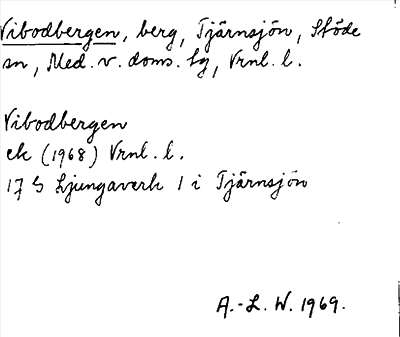 Vibodbergen, berg, Tjärnsjön, Stöde
sn, Med. v. doms. lg, Vrnl. l.
Vibodbergen
ek (1968) Vrnl. l.
17 S Ljungaverk 1 i Tjärnsjön
A.-L. W. 1969.